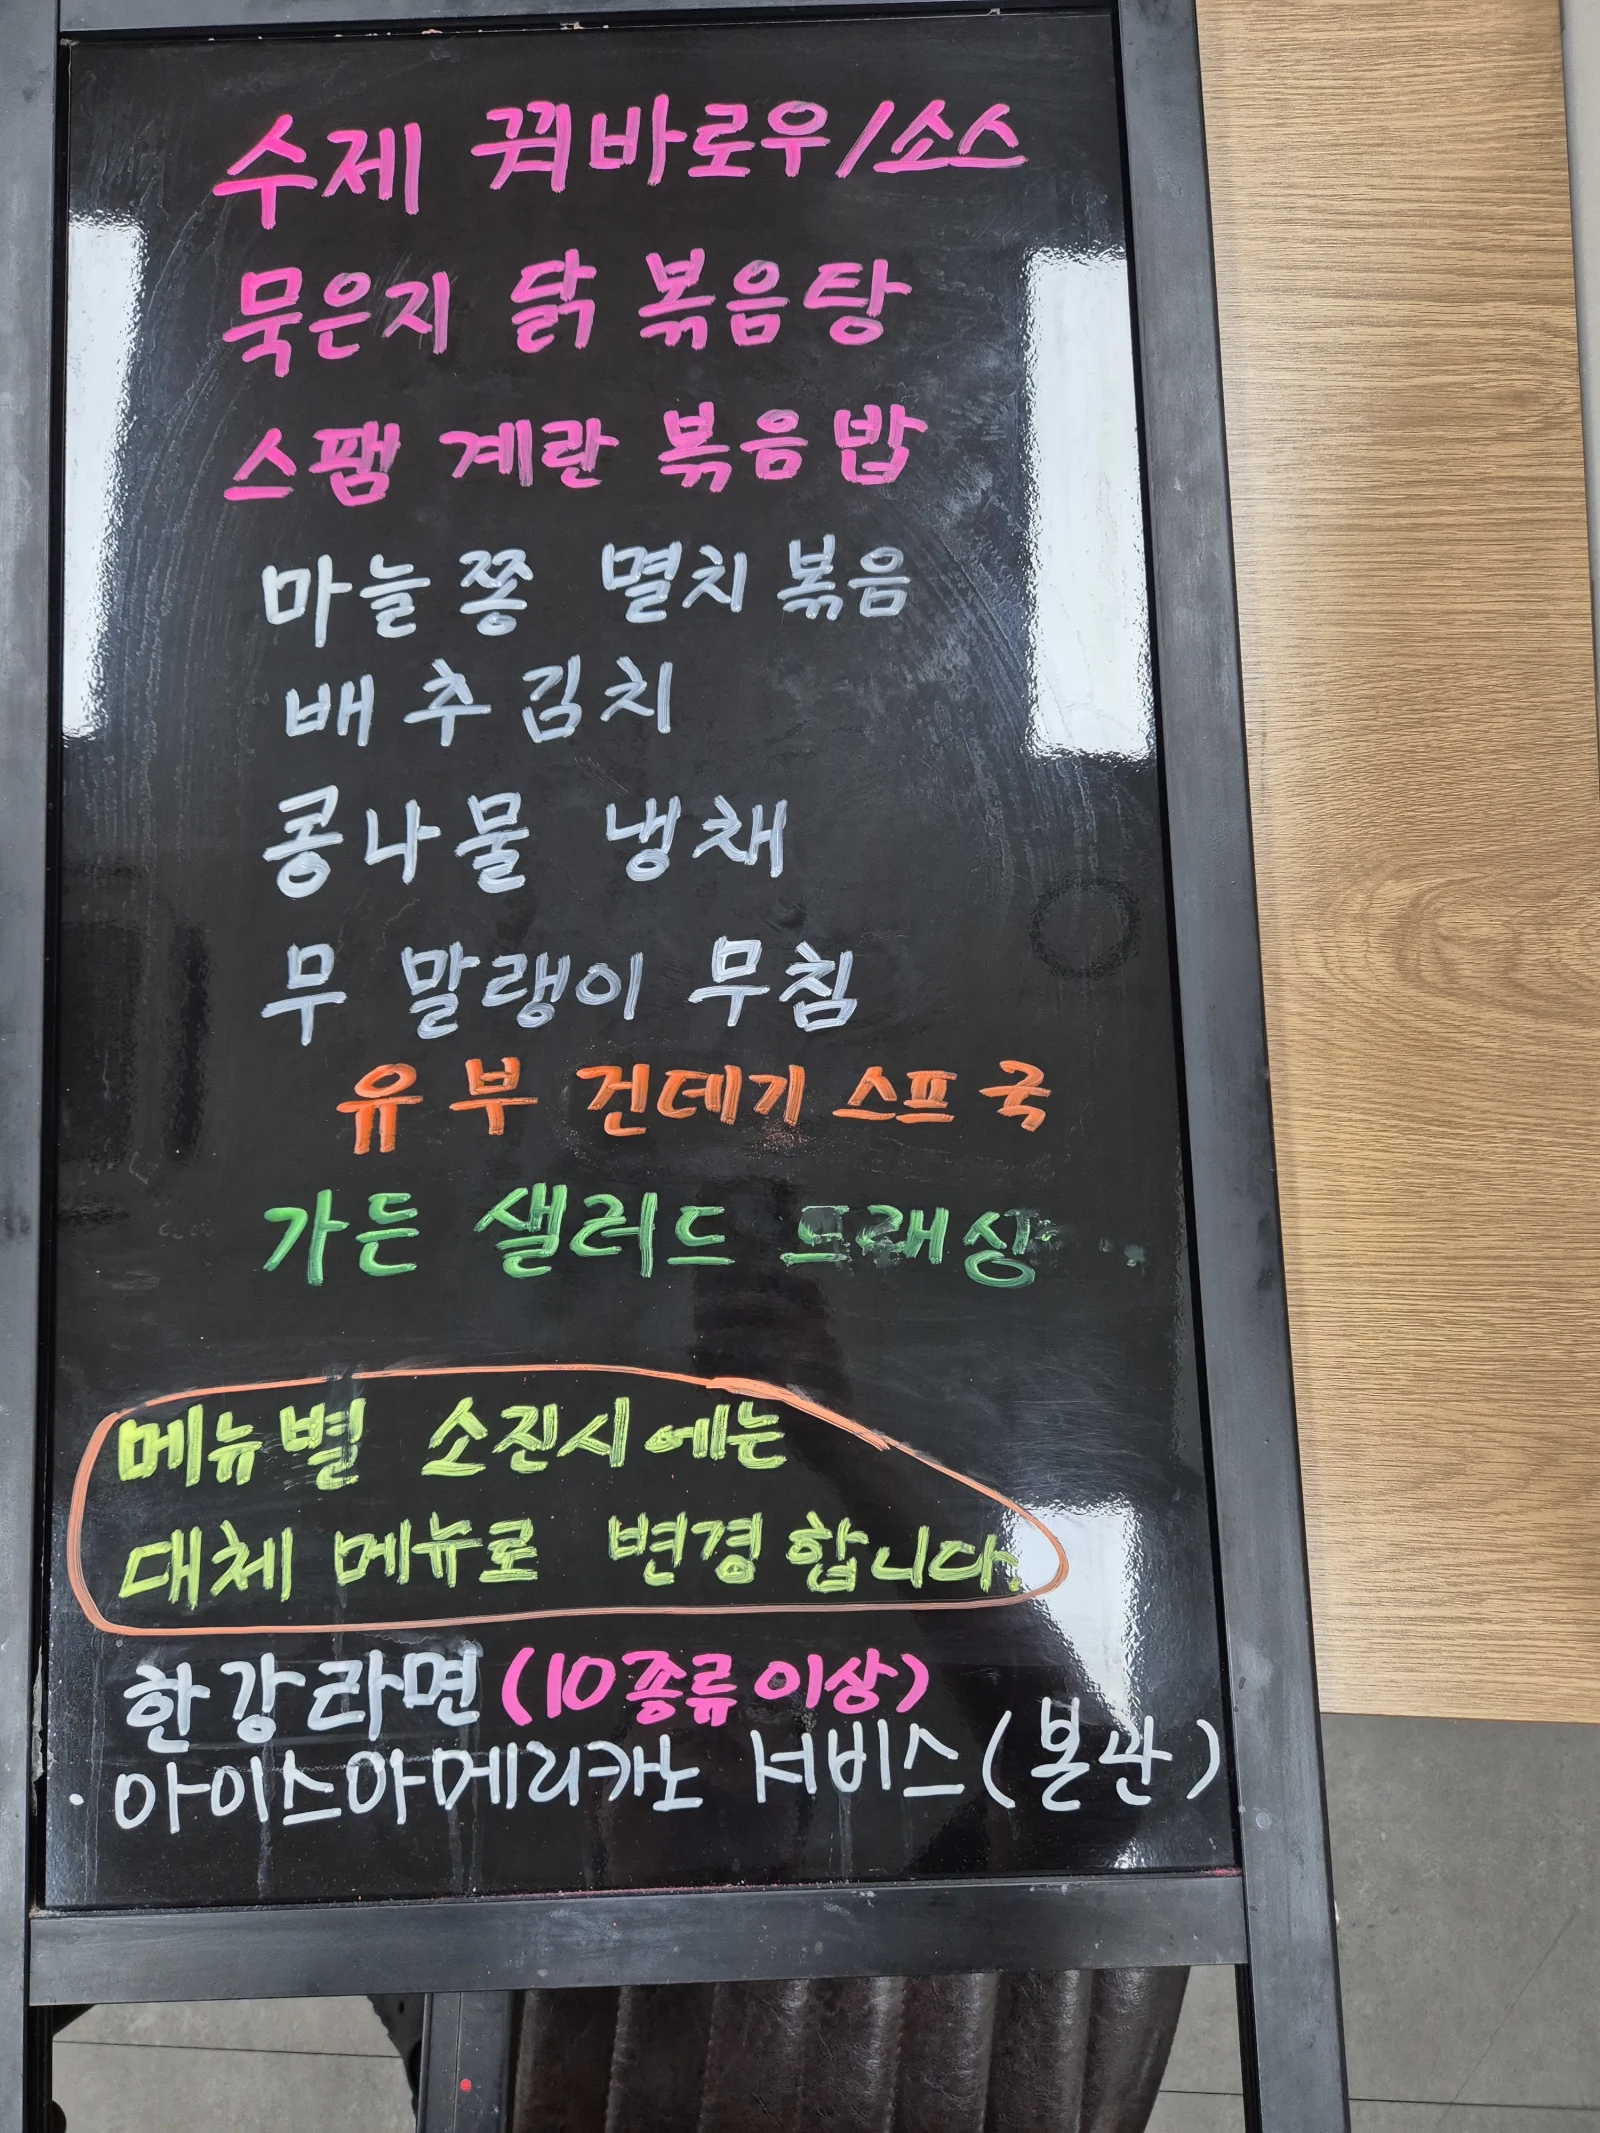 수제 꿔바로우/소스
묵은지 닭 볶음탕
스팸 계란 볶음밥
마늘쫑 멸치 볶음
배추김치
콩나물 냉채
무 말랭이 무침
유부 건데기 스프 국
가든 샐러드 드래싱
메뉴별 소진시에는
대체 메뉴로 변경 합니다.
한강라면 (10종류 이상)
·아이스아메리카노 서비스(본관)